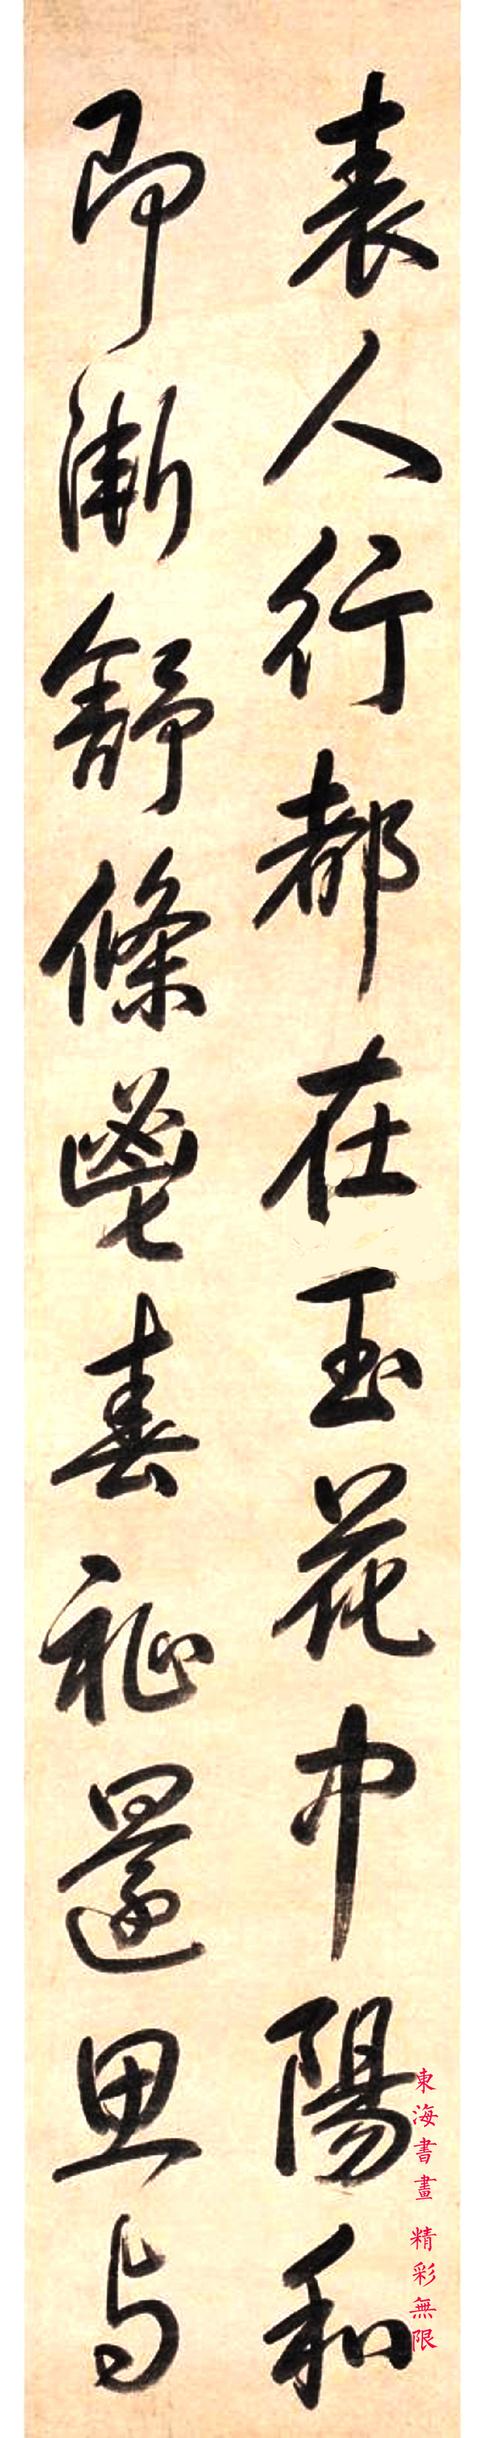 表人行都在玉花中陽和
即漸舒條鬯春祉還思与
東海書畫 精彩無限